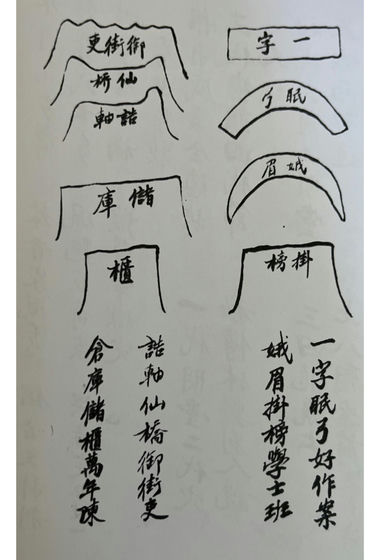 一字
眠弓
娥眉
掛榜
御街吏
仙桥
誥軸
儲庫
櫃
一字眠弓好作案
娥眉掛榜學士班
誥軸仙橋御街吏
倉庫儲櫃萬年陳